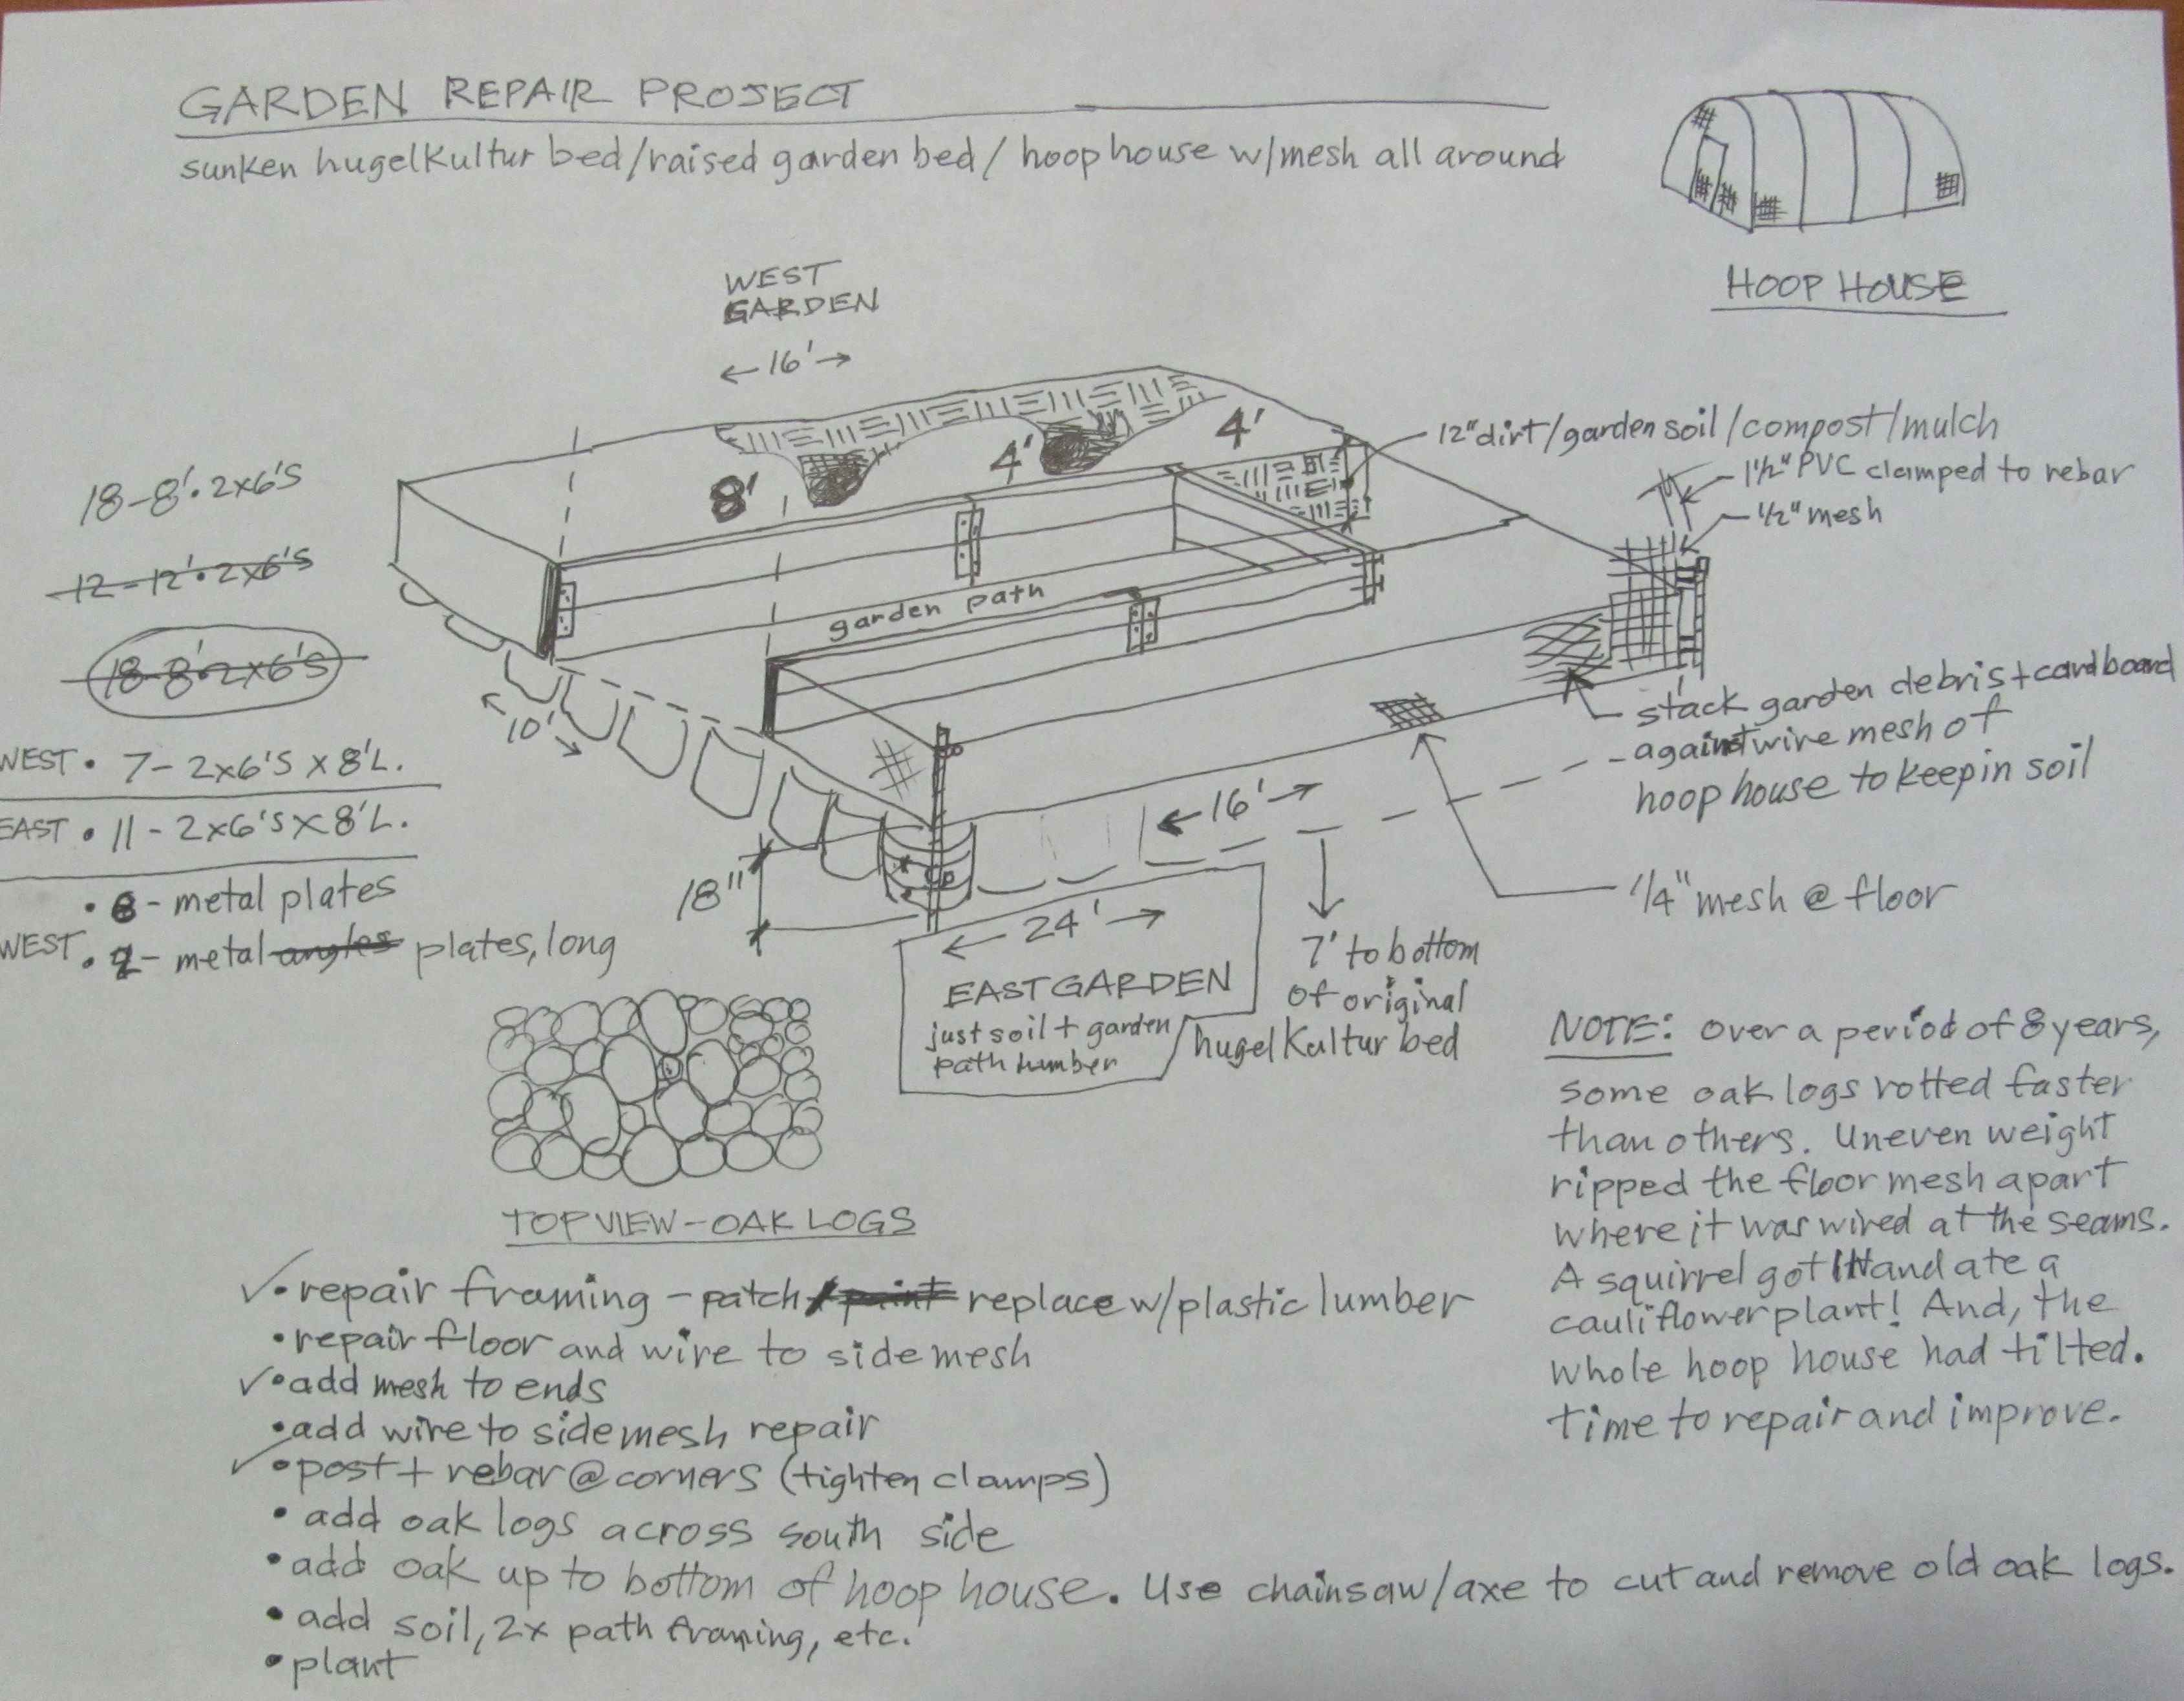 GARDEN REPAIR PROJECT
sunken hugelkultur bed/raised garden bed/ hoop house w/mesh all around
HOOP HOUSE
WEST
GARDEN
←16'→
8'
4'
4'
12" dirt/garden soil/compost/mulch
1½" PVC clamped to rebar
½" mesh
garden path
10'
18-8'·2x6'S
12-12'·2x6'S
18-8'·2x6'S
WEST · 7-2x6'S X 8'L.
EAST · 11-2x6'S X 8'L.
· 8-metal plates
WEST · 2-metal angles plates, long
stack garden debris + cardboard
against wire mesh of
hoop house to keep in soil
←16'→
¼" mesh @ floor
18"
←24'→
EAST GARDEN
just soil + garden
path lumber
7' to bottom
of original
hugelkultur bed
TOP VIEW - OAK LOGS
NOTE: over a period of 8 years,
some oak logs rotted faster
than others. Uneven weight
ripped the floor mesh apart
where it was wired at the seams.
A squirrel got IN and ate a
cauliflower plant! And, the
whole hoop house had tilted.
Time to repair and improve.
✓• repair framing - patch/paint replace w/plastic lumber
• repair floor and wire to side mesh
✓• add mesh to ends
• add wire to side mesh repair
✓• post + rebar @ corners (tighten clamps)
• add oak logs across south side
• add oak up to bottom of hoop house. Use chainsaw/axe to cut and remove old oak logs.
• add soil, 2x path framing, etc.
• plant